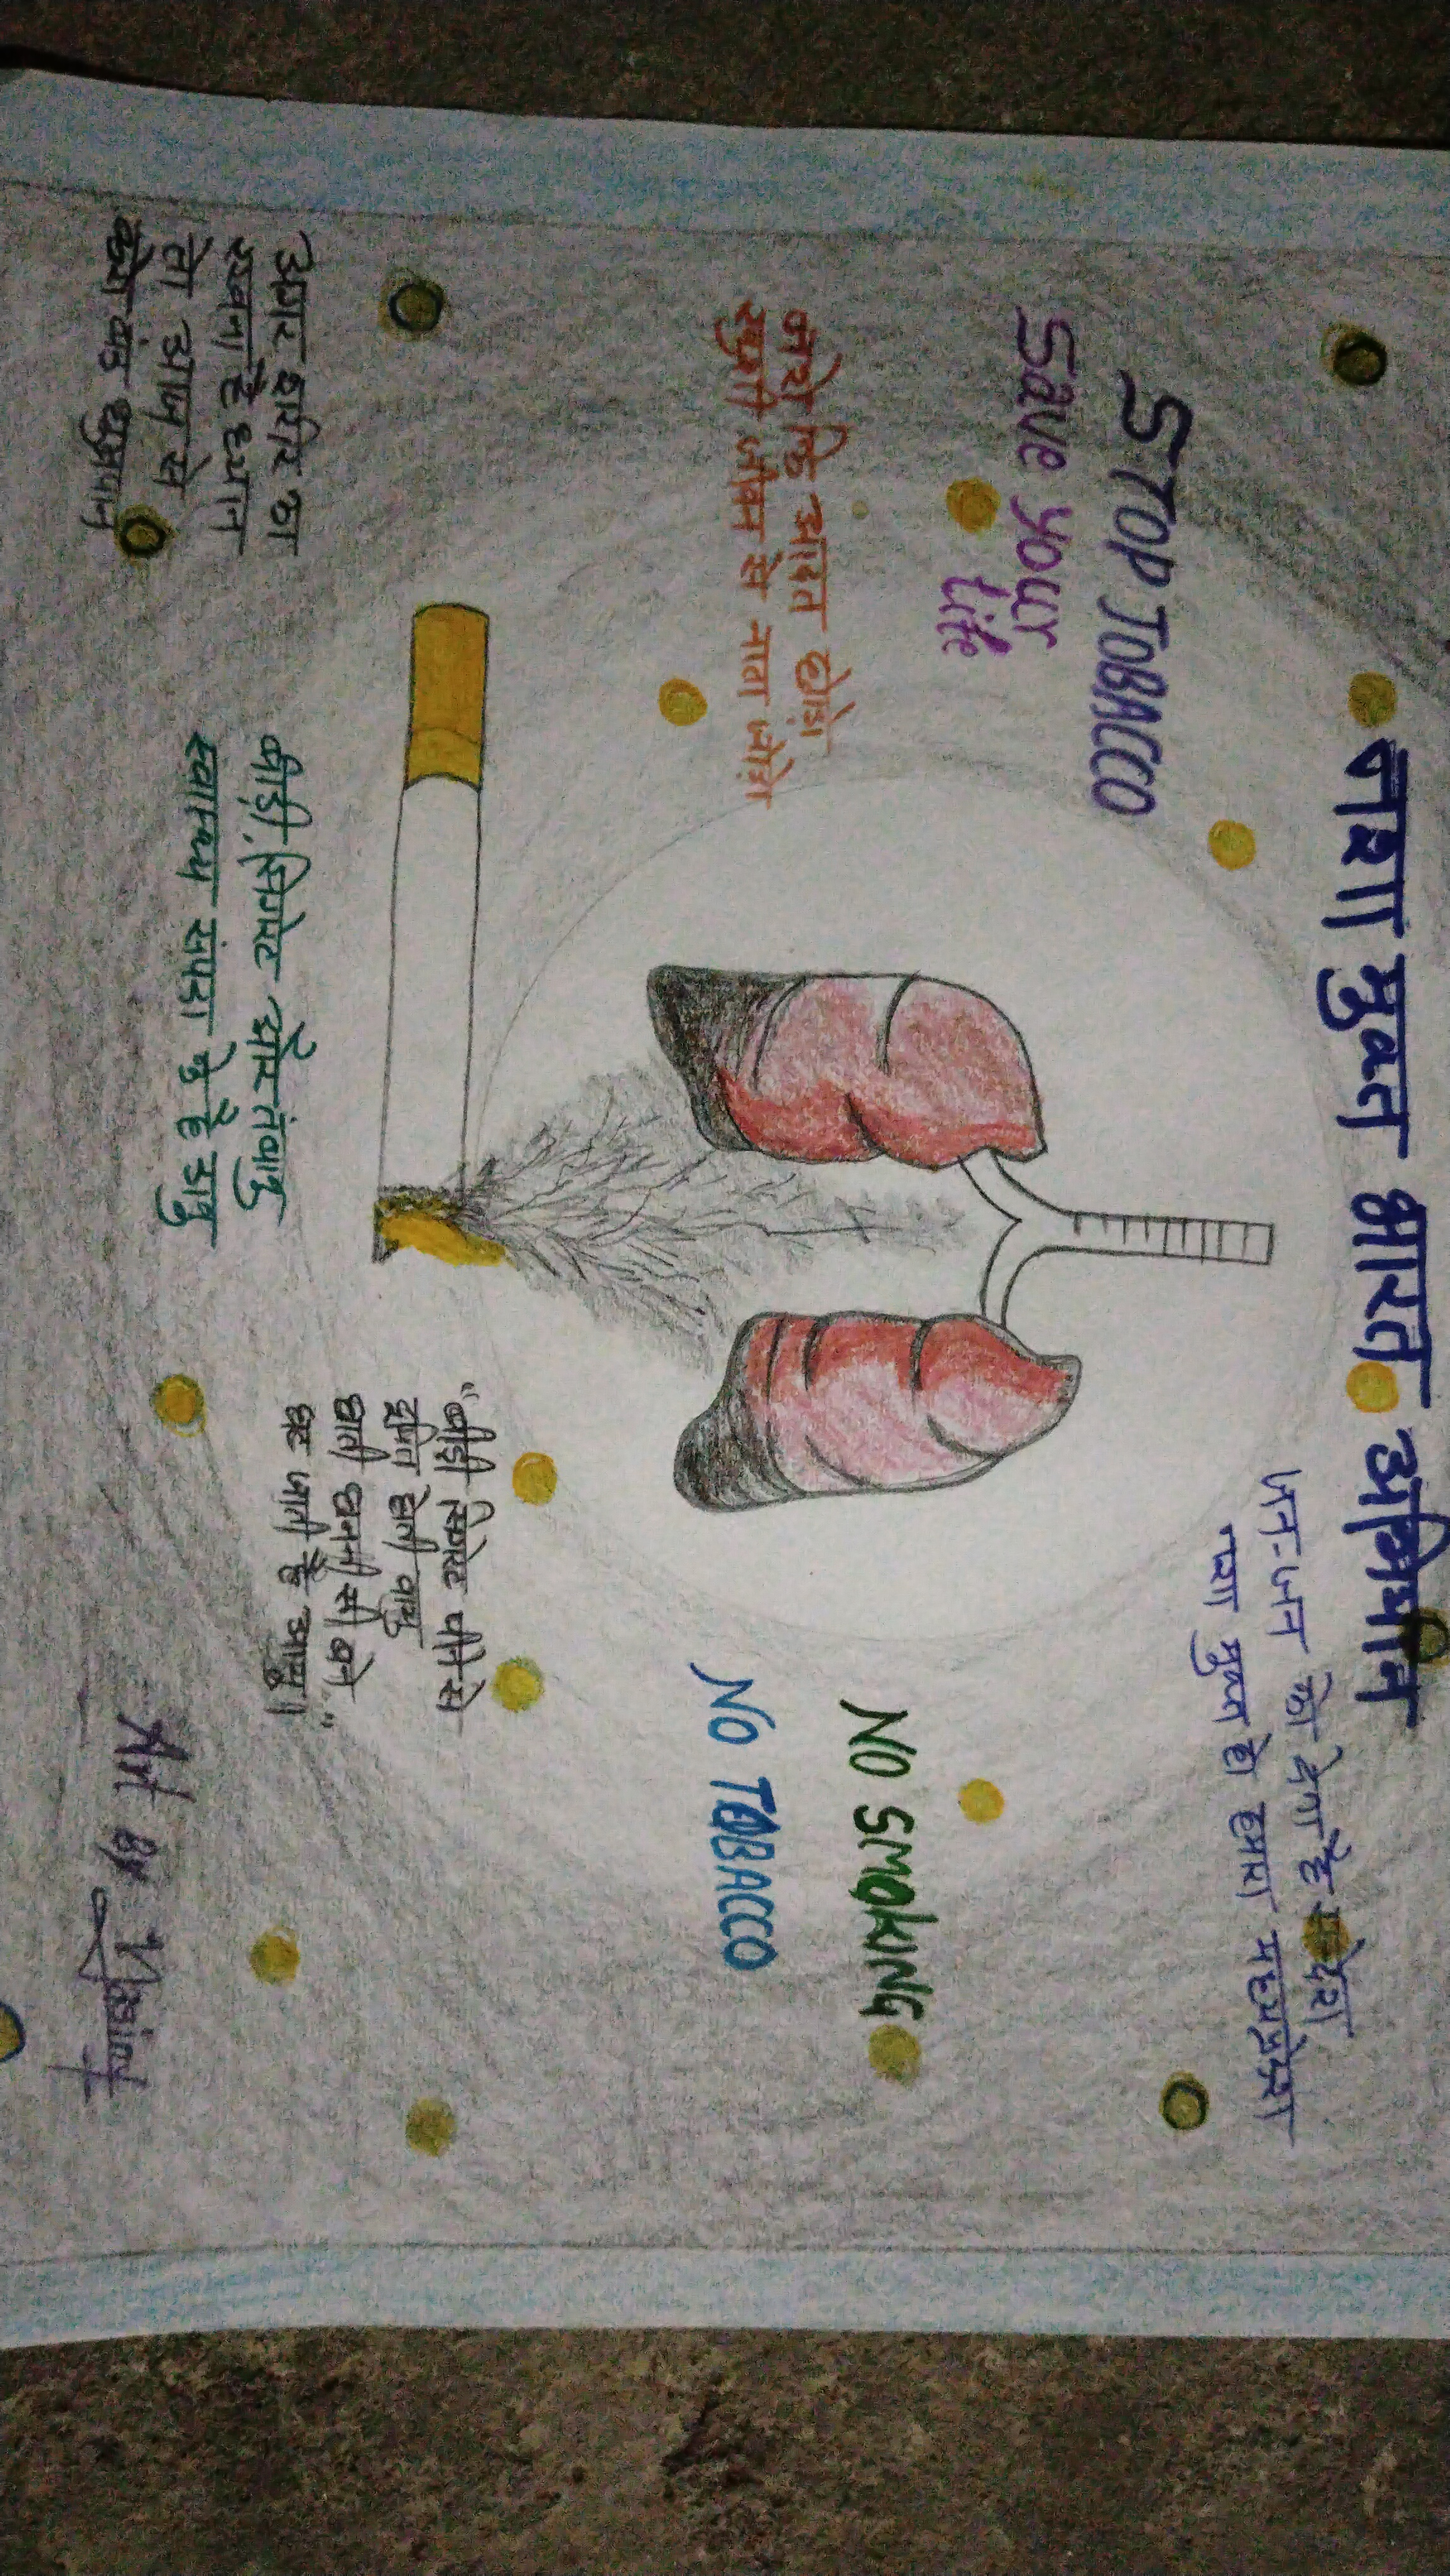 नशा मुक्त भारत अभियान
जन-जन को देना है संदेश
नशा मुक्त हो हमारा मध्यप्रदेश
STOP TOBACCO
Save your
Life
नशे कि आदत छोड़ो
खुशी जीवन से नाता जोड़ो
NO SMOKING
NO TOBACCO
अगर शरीर का
रखना है ध्यान
तो आज से
करो बंद धुम्रपान
बीड़ी, सिगरेट और तंबाकु
स्वास्थ्य संपदा के है डाकु
"बीड़ी सिगरेट पीने से
दूषित होती वायु
छाती छननी सी बने
घट जाती है आयु॥"
Art By